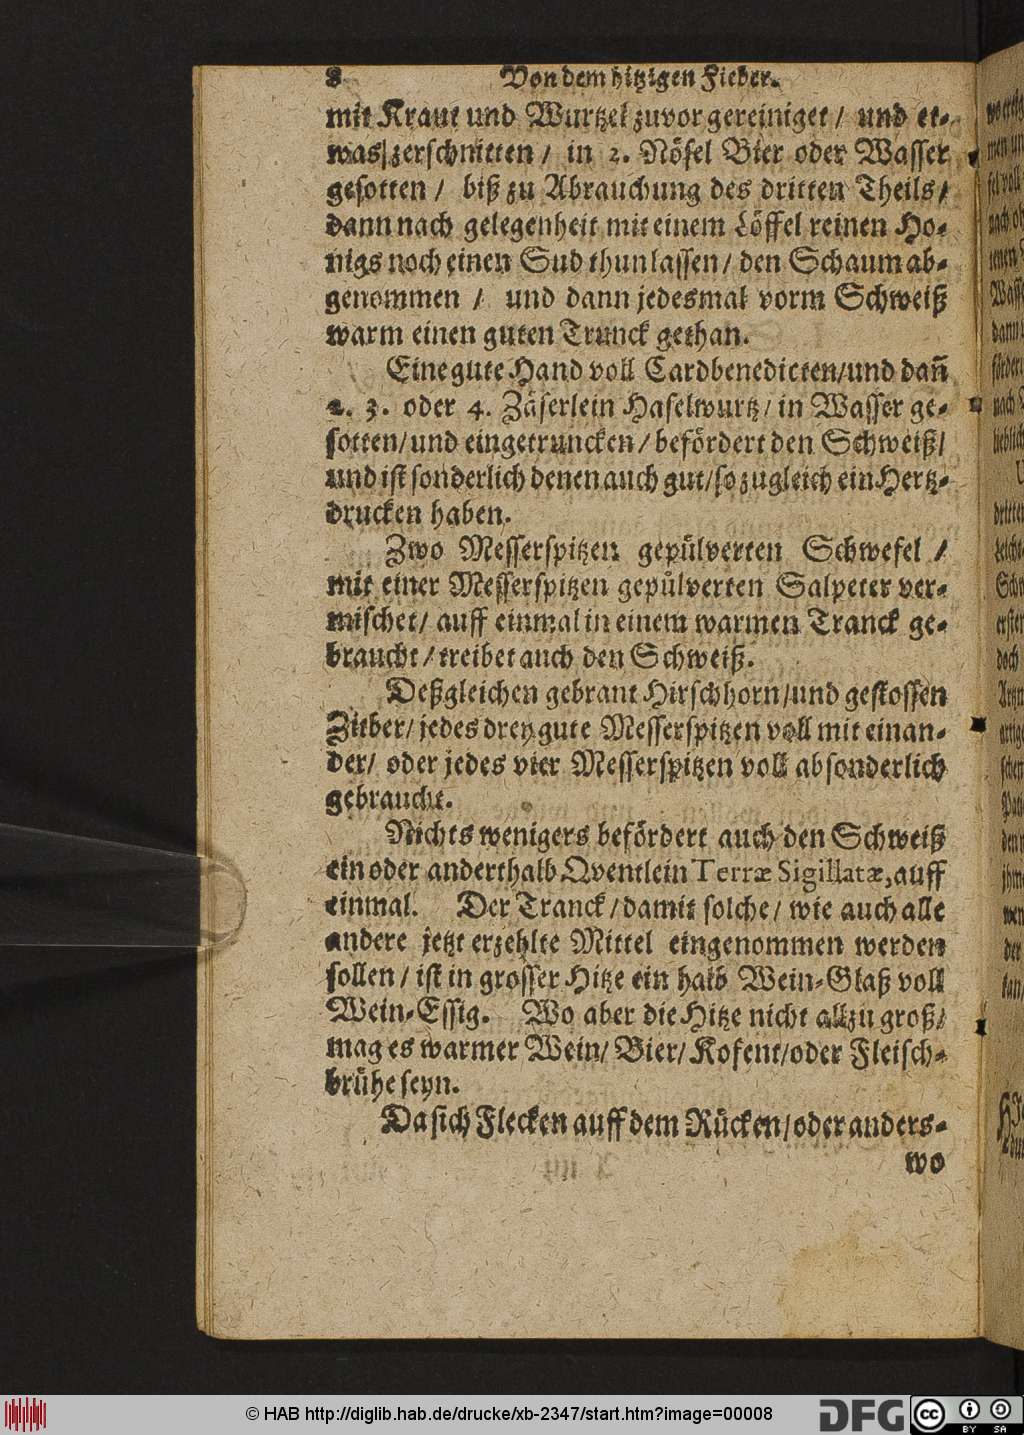 8 Von dem hitzigen Fieber.
mit Kraut und Wurtzel zuvor gereiniget / und et-
was zerschnitten / in 2. Nösel Bier oder Wasser
gesotten / biß zu Abrauchung des dritten Theils /
dann nach gelegenheit mit einem Löffel reinen Ho-
nigs noch einen Sud thun lassen / den Schaum ab-
genommen / und dann jedesmal vorm Schweiß
warm einen guten Trunck gethan.
Eine gute Hand voll Cardbenedicten / und dañ
2. 3. oder 4. Zäserlein Haselwurtz / in Wasser ge-
sotten / und eingetruncken / befördert den Schweiß /
und ist sonderlich denen auch gut / so zugleich ein Hertz-
drucken haben.
Zwo Messerspitzen gepülverten Schwefel /
mit einer Messerspitzen gepülverten Salpeter ver-
mischet / auff einmal in einem warmen Tranck ge-
braucht / treibet auch den Schweiß.
Deßgleichen gebrant Hirschhorn / und gestossen
Zieber / jedes drey gute Messerspitzen voll mit einan-
der / oder jedes vier Messerspitzen voll absonderlich
gebraucht.
Nichts wenigers befördert auch den Schweiß
ein oder anderthalb Qventlein Terræ Sigillatæ, auff
einmal. Der Tranck / damit solche / wie auch alle
andere jetzt erzehlte Mittel eingenommen werden
sollen / ist in grosser Hitze ein halb Wein-Glaß voll
Wein-Essig. Wo aber die Hitze nicht allzu groß /
mag es warmer Wein / Bier / Kofent / oder Fleisch-
brühe seyn.
Da sich Flecken auff dem Rücken / oder anders-
wo
© HAB http://diglib.hab.de/drucke/xb-2347/start.htm?image=00008
DFG
cc BY SA